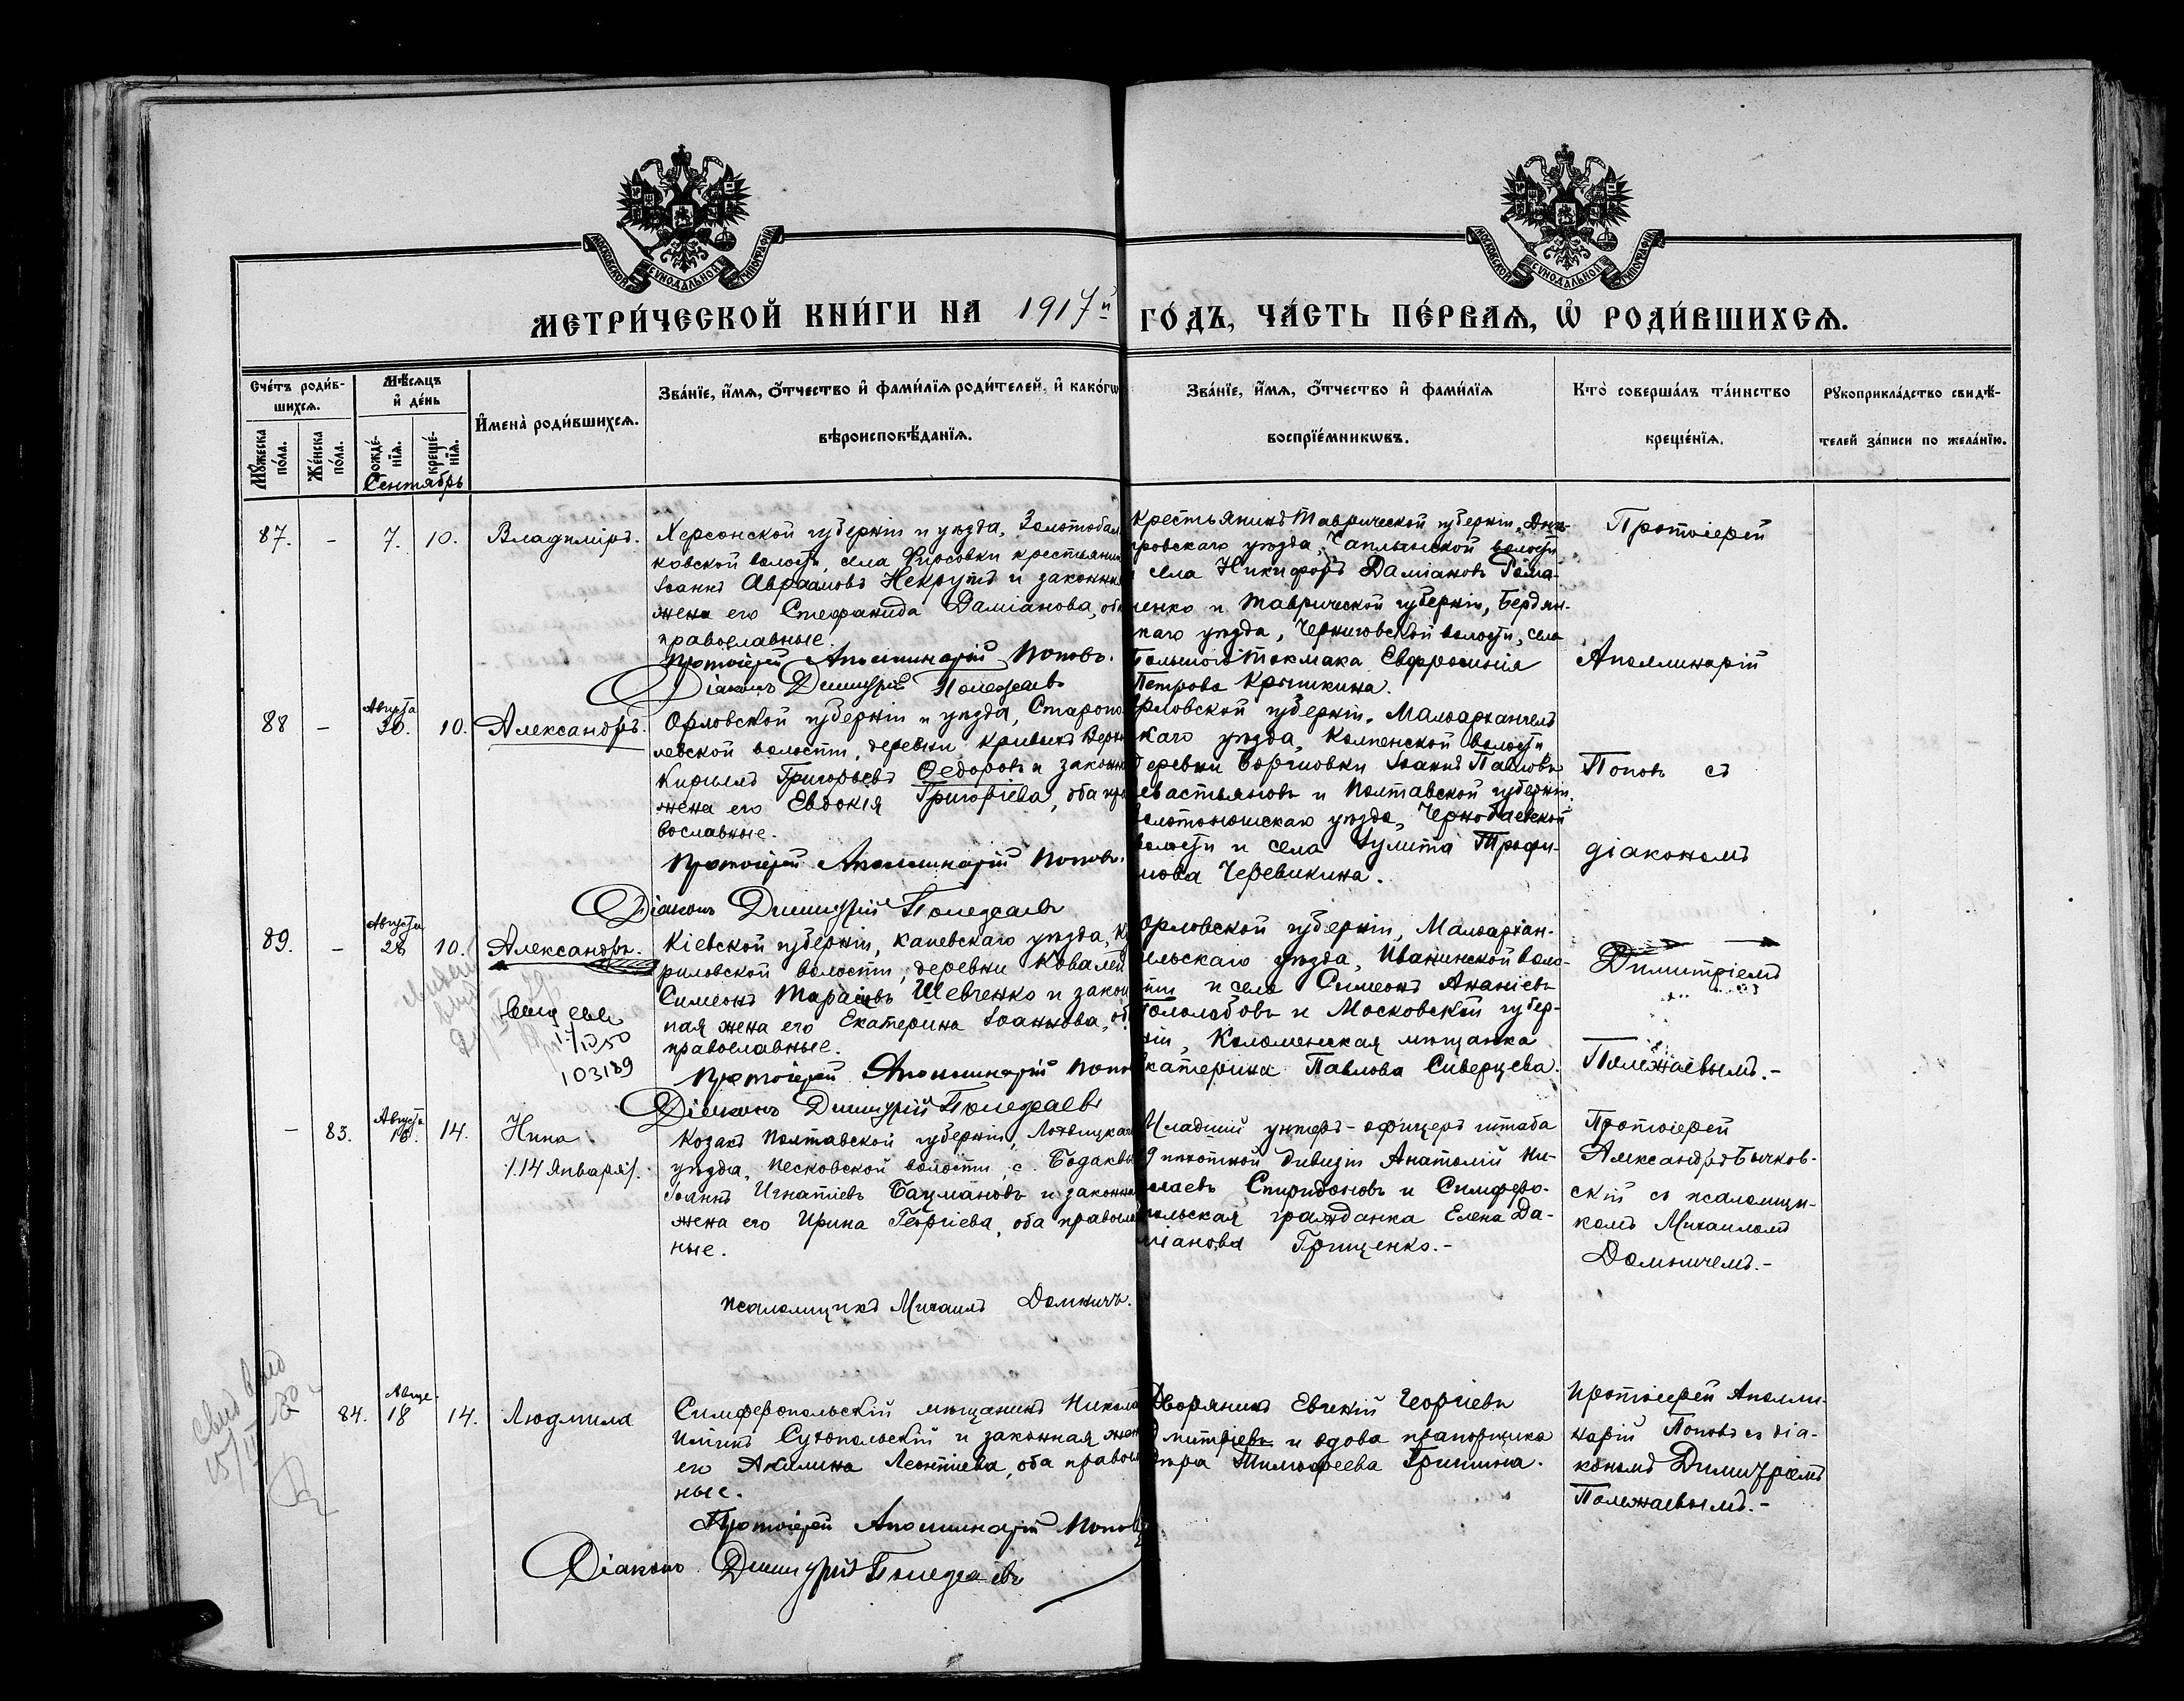 МОСКОВСКОЙ СѴНОДАЛЬНОЙ ТИПОГРАФІИ
МОСКОВСКОЙ СѴНОДАЛЬНОЙ ТИПОГРАФІИ
МЕТРИ́ЧЕСКОЙ КНИ́ГИ НА 1917й ГО́ДЪ, ЧА́СТЬ ПЕ́РВАЯ, Ѡ҆ РОДИ́ВШИХСЯ.
Сче́тъ роди́в-
шихся.
Мꙋ́жеска по́ла.
Же́нска по́ла.
Мѣ́сяцъ и҆ де́нь
рожде́-нїя.
креще́-нїя.
Сентябрь
И҆мена̀ роди́вшихся.
Зва́нїе, и҆́мя, ѻ҆́тчество и҆ фами́лїя роди́телей, и҆ како́гѡ
вѣроисповѣ́данїя.
Зва́нїе, и҆́мя, ѻ҆́тчество и҆ фами́лїя
воспрїе́мникѡвъ.
Кто̀ соверша́лъ та́инство
креще́нїя.
Рꙋкоприкла́дство свидѣ́-
телей за́писи по жела́нїю.
87. - 7. 10. Владиміръ.
Херсонской губерніи и уѣзда, Золотобал
ковской волости, села Фирсовки крестьянин
Іоаннъ Авраамовъ Некрутъ и законна
жена его Стефанида Даміанова, оба
православные.
Протоіерей Аполлинарій Поповъ.
Діаконъ Димитрій Полежаевъ
Крестьянинъ Таврической губерніи, Днѣ-
провскаго уѣзда, Чаплынской волости
и села Никифоръ Даміановъ Рома-
ненко и Таврической губерніи, Бердян-
скаго уѣзда, Черниговской волости, села
Большого Токмака Евфросинія
Петрова Крышкина.
Протоіерей
Аполлинарій
88 - Августа 30. 10. Александръ.
Орловской губерніи и уѣзда,
левской волости, деревни Кривыхъ Верхн
Кириллъ Григорьевъ Ѳедоровъ и законн
жена его Евдокія Григоріева, оба пра
вославные.
Протоіерей Аполлинарій Поповъ.
Діаконъ Димитрій Полежаевъ
Орловской губерніи, Малоархангель
скаго уѣзда, Колпенской волости
деревни Іоаннъ Павловъ
Севастьяновъ и Полтавской губерніи,
Золотоношскаго уѣзда, Чернобаевской
волости и села Іулита Трофи-
мова Черевикина.
Поповъ съ
діакономъ
89. - Августа 28 10. Александръ.
1950
103189
Кіевской губерніи, Каневскаго уѣзда, Ки
риловской волости, деревни Ковалей
Симеонъ Тарасовъ Шевченко и закон
ная жена его Екатерина Іоаннова, оба
православные.
Протоіерей Аполлинарій Попов
Діаконъ Димитрій Полежаевъ
Орловской губерніи, Малоархан-
гельскаго уѣзда, Иванинской воло-
сти и села Симеонъ Ананіевъ
Гололобовъ и Московской губер-
ніи, Коломенская мѣщанка
Екатерина Павлова Сиверцева.
Димитріемъ
Полежаевымъ.-
- 83. Августа 14. Нина
/.14 Января/.
Козакъ Полтавской губерніи, Лохвицкаго
уѣзда, Песковской волости, с. Бодаквы
Іоаннъ Игнатіевъ Бацмановъ и законна
жена его Ирина Георгіева, оба правосл
ные.
Псаломщикъ Михаилъ Домничъ.
Младшій унтеръ-офицеръ штаба
9 пѣхотной дивизіи Анатолій Ни-
колаевъ Спиридоновъ и Симферо-
польская гражданка Елена Да-
міанова Грищенко.-
Протоіерей
Александръ Бычков-
скій съ псаломщи-
комъ Михаиломъ
Домничемъ.-
84. Авгус. 18 14. Людмила
Симферопольскій мѣщанинъ Никола
Иліинъ Сухопольскій и законная жен
его Акилина Леонтіева, оба правосл
ные.
Протоіерей Аполлинарій Попов
Діаконъ Димитрій Полежаевъ
Дворянинъ Евгеній Георгіевъ
Димитріевъ и вдова прапорщика
Тимофеева Гришина.
Протоіерей Аполли-
нарій Поповъ съ діа-
кономъ Димитріемъ
Полежаевымъ.-